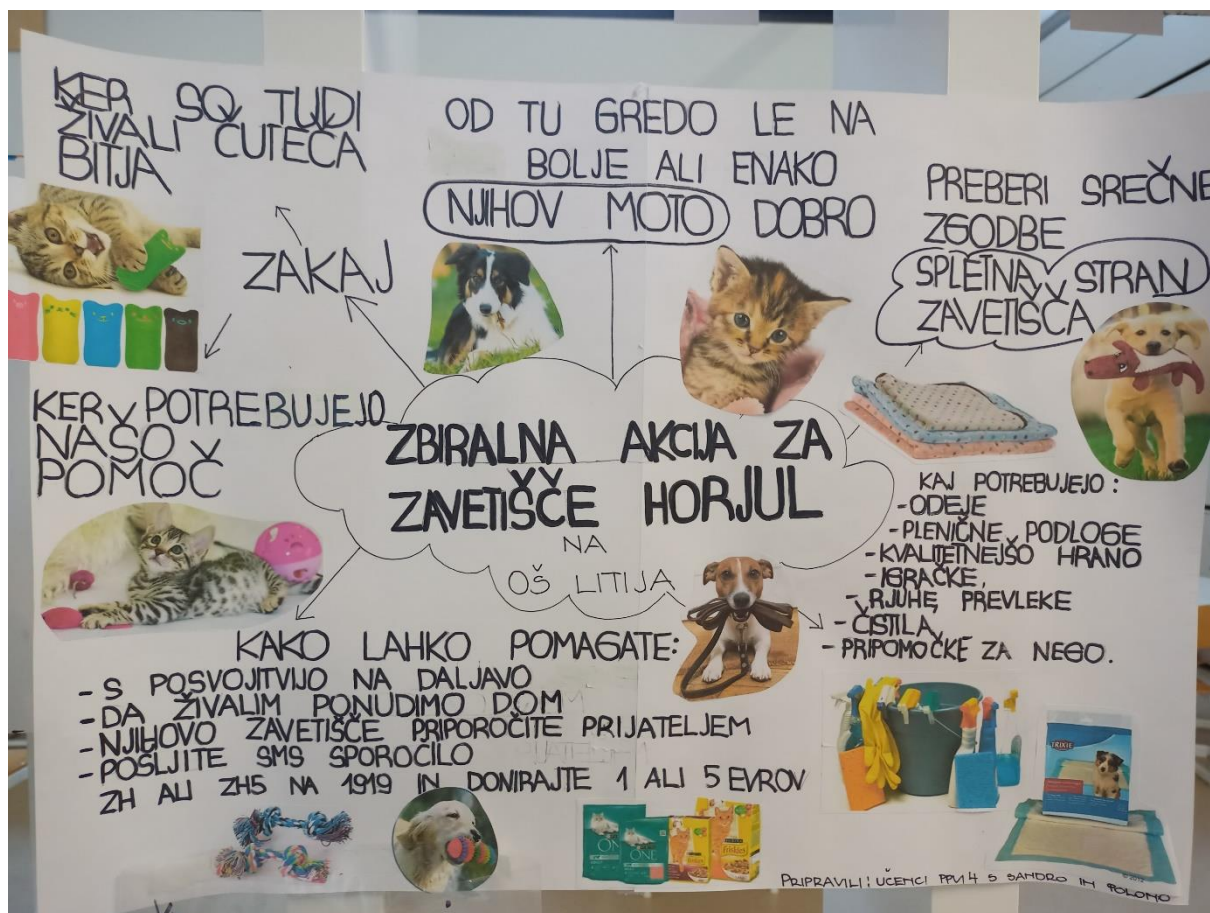 KER SO TUDI
ŽIVALI ČUTEČA
BITJA
ZAKAJ
KER POTREBUJEJO
NAŠO
POMOČ
OD TU GREDO LE NA
BOLJE ALI ENAKO
NJIHOV MOTO DOBRO
PREBERI SREČNE
ZGODBE
SPLETNA STRAN
ZAVETIŠČA
ZBIRALNA AKCIJA ZA
ZAVETIŠČE HORJUL
NA
OŠ LITIJA
KAJ POTREBUJEJO:
-ODEJE
-PLENIČNE PODLOGE
-KVALITETNEJŠO HRANO
-IGRAČKE,
-RJUHE, PREVLEKE
-ČISTILA,
-PRIPOMOČKE ZA NEGO.
KAKO LAHKO POMAGATE:
- S POSVOJITVIJO NA DALJAVO
- DA ŽIVALIM PONUDIMO DOM
- NJIHOVO ZAVETIŠČE PRIPOROČITE PRIJATELJEM
- POŠLJITE SMS SPOROČILO
ZH ALI ZH5 NA 1919 IN DONIRAJTE 1 ALI 5 EVROV
TRIXIE
ONE
Friskies
PRIPRAVILI: UČENCI PPVI 4 S SANDRO IN POLONO